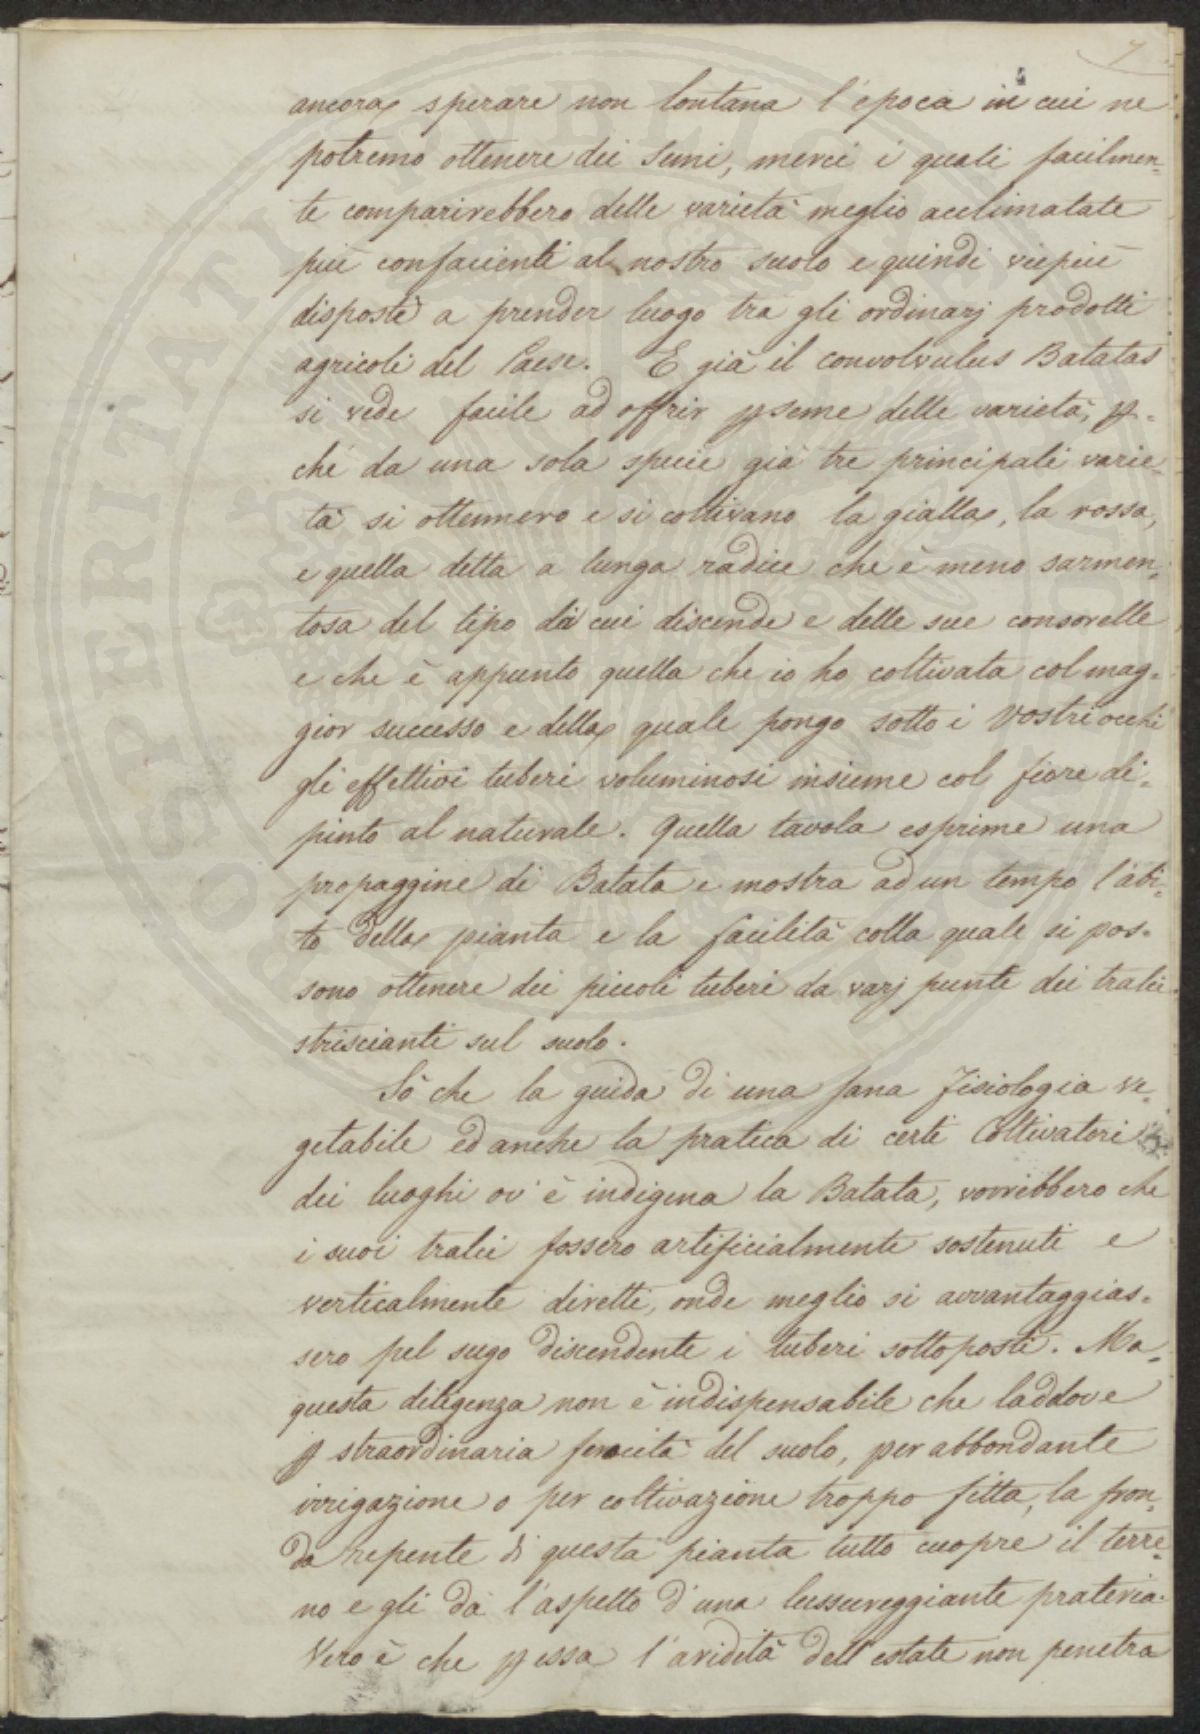 7
ancora sperare non lontana l'epoca in cui ne
potremo ottenere dei semi, mercé i quali facilmen-
te comparirebbero delle varietà meglio acclimatate
più confacienti al nostro suolo e quindi viepiù
disposte a prender luogo tra gli ordinarj prodotti
agricoli del Paese. E già il convolvulus Batatas
si vede facile ad offrir p seme delle varietà, p-
chè da una sola specie già tre principali varie-
tà si ottennero e si coltivano la gialla, la rossa,
e quella detta a lunga radice che è meno sarmen-
tosa del tipo da cui discende e delle sue consorelle
e che è appunto quella che io ho coltivata col mag-
gior successo e della quale pongo sotto i vostri occhi
gli effettivi tuberi voluminosi insieme col fiore di-
pinto al naturale. Quella tavola esprime una
propaggine di Batata e mostra ad un tempo l'abi-
to della pianta e la facilità colla quale si pos-
sono ottenere dei piccoli tuberi da varj punti dei tralci
striscianti sul suolo.
Sò che la guida di una sana Fisiologia ve-
getabile ed anche la pratica di certi Coltivatori
dei luoghi ov'è indigena la Batata, vorrebbero che
i suoi tralci fossero artificialmente sostenuti e
verticalmente diretti, onde meglio si avvantaggias-
sero pel sugo discendente i tuberi sottoposti. Ma
questa diligenza non è indispensabile che laddove
p straordinaria feracità del suolo, per abbondante
irrigazione o per coltivazione troppo fitta, la fron-
da repente di questa pianta tutto cuopre il terre-
no e gli dà l'aspetto d'una lussureggiante prateria.
Vero è che p essa l'aridità dell'estate non penetra
OSPERITATI PUBLICAE AU